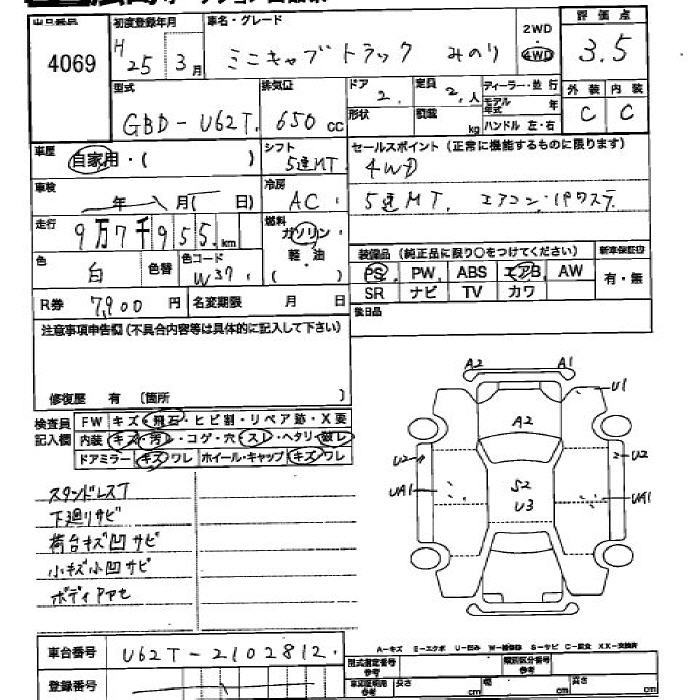 出品番号 4069
初度登録年月 H25年3月
車名・グレード ミニキャブトラック みのり
2WD 4WD
評価点 3.5
型式 GBD-U62T
排気量 650cc
ドア 2
定員 2人
形状
積載 kg
ディーラー・並行
モデル年式 年
ハンドル 左・右
外装 C 内装 C
車歴 自家用・( )
シフト 5速MT
セールスポイント (正常に機能するものに限ります)
4WD
5速MT. エアコン・パワステ
車検 年 月( 日)
冷房 AC
走行 9万7千955km
燃料 ガソリン・軽・油 ( )
色 白 色替
色コード W37
装備品 (純正品に限り○をつけてください)
新車保証書 有・無
PS PW ABS エアB AW
SR ナビ TV カワ
R券 7,900円
名変期限 月 日
後日品
注意事項申告欄(不具合内容等は具体的に記入して下さい)
修復歴 有 〔箇所 〕
検査員記入欄
FW キズ・飛石・ヒビ割・リペア跡・X要
内装 キズ・汚レ・コゲ・穴・スレ・ヘタリ・破レ
ドアミラー キズ ワレ ホイール・キャップ キズ ワレ
スタンドレスT
下廻りサビ
荷台キズ凹サビ
小キズ小凹サビ
A2 A1
U1
A2
U2 U2
UA1 S2 UA1
U3
A-キズ E-エクボ U-凹み W-補修跡 S-サビ C-腐食 XX-交換済
車台番号 U62T-2102812
型式指定番号 参考
類別区分番号 参考
登録番号
車庫証明用 参考 長さ cm 幅 cm 高さ cm